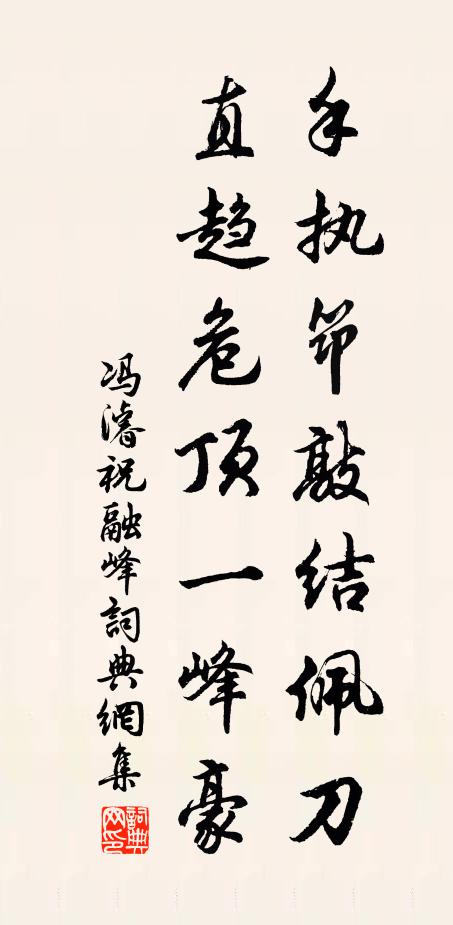 手执筇敲结佩刀
直趋危顶一峰豪
冯濬祝融峰詞典網集
詞典网印